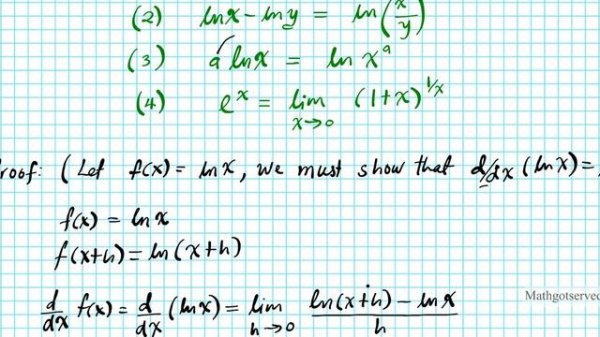 (2) lnx - lny = ln(x/y)
(3) a lnx = ln xᵃ
(4) eˣ = lim x→0 (1+x)^1/x
roof: (Let f(x) = lnx, we must show that d/dx (lnx) =
f(x) = lnx
f(x+h) = ln(x+h)
d/dx f(x) = d/dx (lnx) = lim h→0 ln(x+h) - lnx / h
Mathgotserved